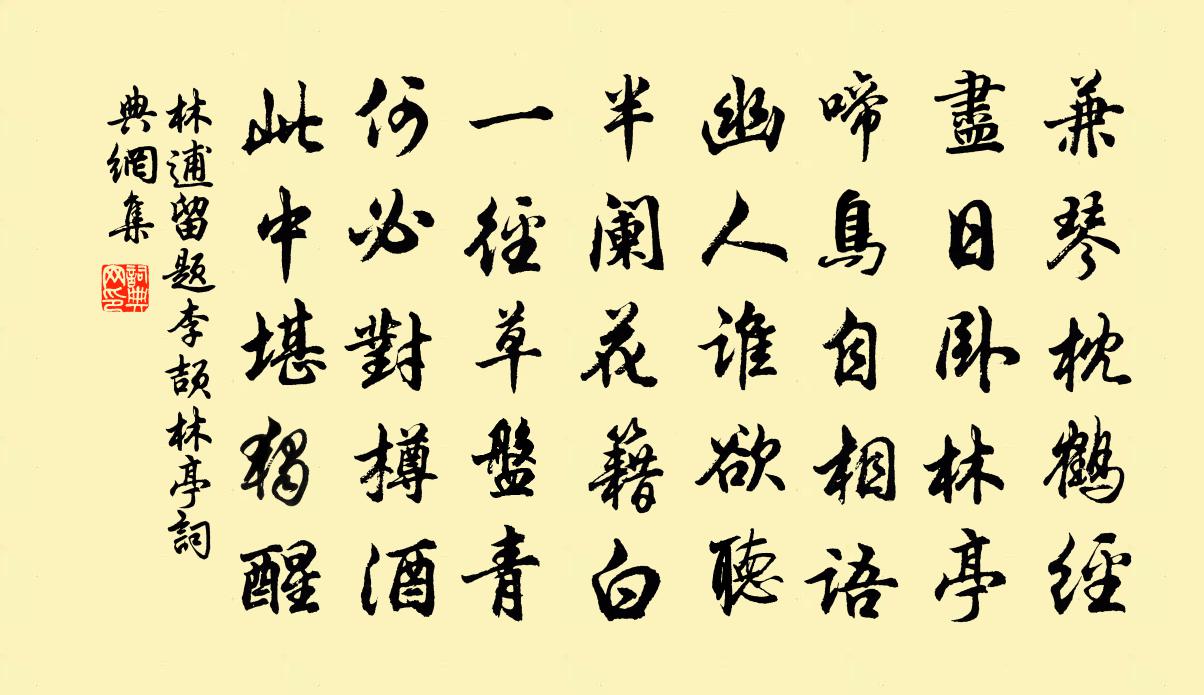 兼琴枕鶴經
盡日卧林亭
啼鳥自相語
幽人誰欲聽
半阑花籍白
一徑草盤青
何必對樽酒
此中堪獨醒
林逋留题李颉林亭詞
典網集
詞典
网印